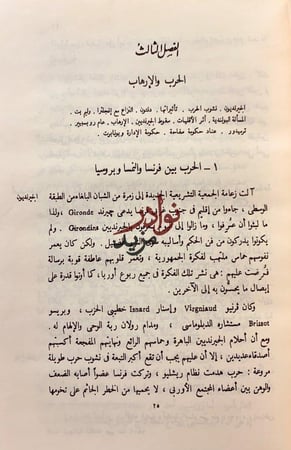 الفصل الثالث
الحرب والإرهاب
الجيرنديون . نشوب الحرب . تأثيراتها . دانتون . النزاع مع انجلترا . وليم بت .
المسألة البولندية . أثر الأقليات . سقوط الجيرنديين . الإرهاب . عام روبسبير .
ترميدور . عناد حكومة مفاجئة . حكومة الإدارة وبونابرت .
١ - الحرب بين فرنسا والنمسا وبروسيا
الجيرنديون
آلت زعامة الجمعية التشريعية الجديدة إلى زمرة من الشبان البلغاء من الطبقة
الوسطى ، جاءوا من إقليم في جنوب يدعى جيرند Gironde ، ولذا
ما لبثوا أن عُرفوا ، وما زالوا الجيرنديين Girondins
يكونوا يدركون من فن الحكم وأساليبه ، ولكن كان يعمر
نفوسهم حماس ملتهب لفكرة الجمهورية ، وتغمر قلوبهم عاطفة قوية برسالة
فُرضت عليهم : هى نشر تلك الفكرة فى جميع ربوع أوربا ، كما أوتوا قدرة على
إيصال ما يحسون به إلى الآخرين .
وكان فرنيو Virgniaud وإسنار Isnard خطيبى الحزب ، وبريسو
Brissot مستشاره الدبلوماسى ، ومدام رولان ربة الوحى والإلهام له .
ومع أن أحلام الجيرنديين الباهرة وحماسهم الرائع ونهايتهم المفجعة أكسبتهم
أصدقاء عديدين ، إلا أن عليهم يجب أن تقع أكبر التبعة فى نشوب حرب طويلة
مروعة : حرب هدمت نظام ريشليو ، وتركت فرنسا عضواً أصابه الضعف
والوهن بين أعضاء المجتمع الأوربى ، لا يحميها من الخطر الجاثم على تخومها
٢٥
نوادر